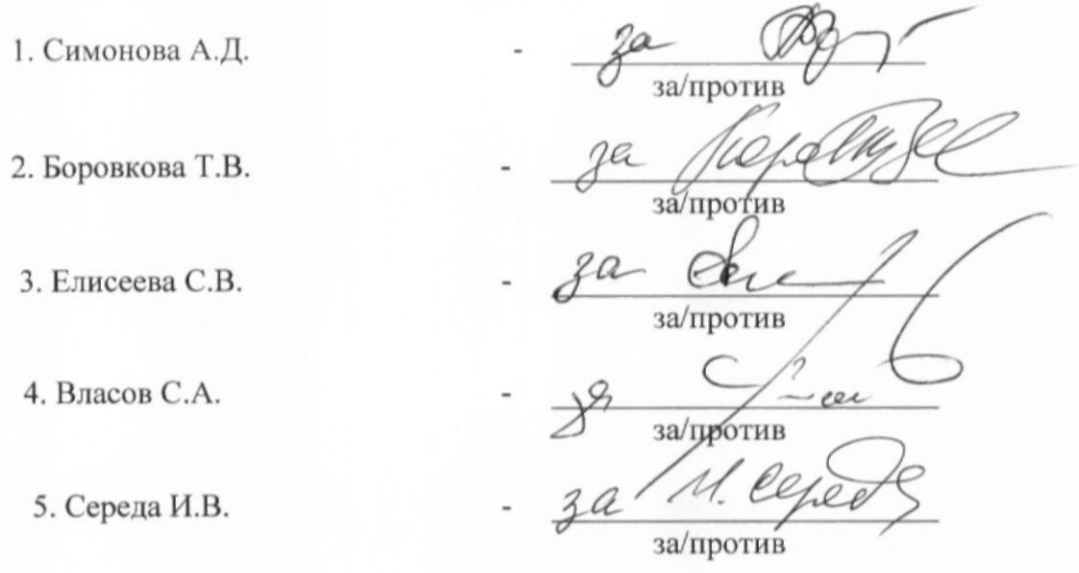 1. Симонова А.Д. - за
за/против
2. Боровкова Т.В. - за
за/против
3. Елисеева С.В. - за
за/против
4. Власов С.А. -
за/против
5. Середа И.В. - за И. Середа
за/против